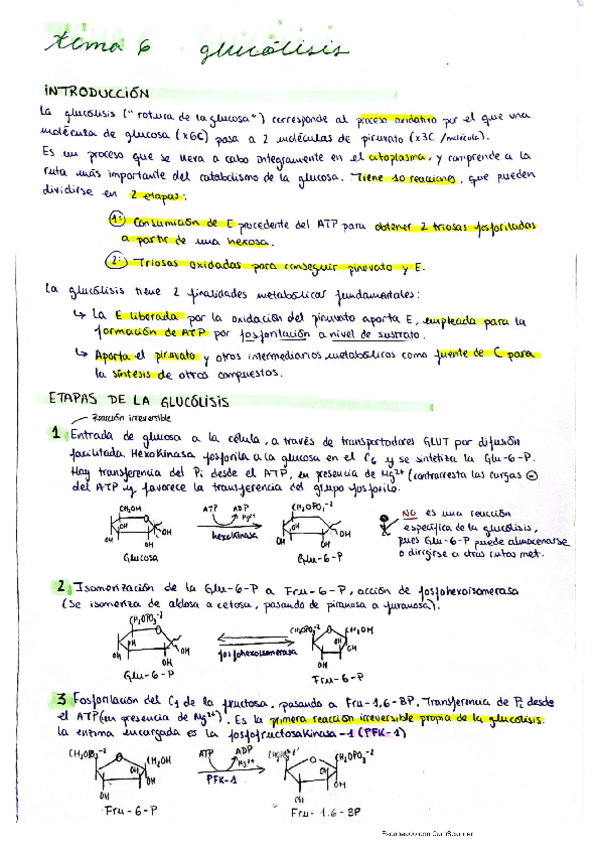 tema 6 glucólisis
INTRODUCCIÓN
La glucólisis ("rotura de la glucosa") corresponde al proceso oxidativo por el que una
molécula de glucosa (x6C) pasa a 2 moléculas de piruvato (x3C /molécula).
Es un proceso que se lleva a cabo íntegramente en el citoplasma, y comprende a la
ruta más importante del catabolismo de la glucosa. Tiene 10 reacciones, que pueden
dividirse en 2 etapas:
1: Consumición de E procedente del ATP para obtener 2 triosas fosforiladas
a partir de una hexosa.
2: Triosas oxidadas para conseguir piruvato y E.
La glucólisis tiene 2 finalidades metabólicas fundamentales:
↳ La E liberada por la oxidación del piruvato aporta E, empleada para la
formación de ATP por fosforilación a nivel de sustrato.
↳ Aporta el piruvato y otros intermediarios metabólicos como fuente de C para
la síntesis de otros compuestos.
ETAPAS DE LA GLUCÓLISIS
Reacción irreversible
1 Entrada de glucosa a la célula, a través de transportadores GLUT por difusión
facilitada. Hexokinasa fosforila a la glucosa en el C6 y se sintetiza la Glu-6-P.
Hay transferencia del Pi desde el ATP, en presencia de Mg2+ (contrarresta las cargas ⊖
del ATP y favorece la transferencia del grupo fosforilo.
CH2OH OH OH OH Glucosa
ATP ADP Mg2+ hexokinasa
CH2OPO3-2 OH OH OH Glu-6-P
NO es una reacción
específica de la glucólisis,
pues Glu-6-P puede almacenarse
o dirigirse a otras rutas met.
2 Isomerización de la Glu-6-P a Fru-6-P, acción de fosfohexoisomerasa
(Se isomeriza de aldosa a cetosa, pasando de piranosa a furanosa).
CH2OPO3-2 OH OH OH Glu-6-P
fosfohexoisomerasa
CH2OPO3-2 CH2OH OH OH Fru-6-P
3 Fosforilación del C1 de la fructosa, pasando a Fru-1,6-BP. Transferencia de Pi desde
el ATP (en presencia de Mg2+). Es la primera reacción irreversible propia de la glucólisis.
La enzima encargada es la fosfofructosakinasa-1 (PFK-1)
CH2OPO3-2 CH2OH OH OH Fru-6-P
ATP ADP Mg2+ PFK-1
CH2OPO3-2 CH2OPO3-2 OH OH Fru-1,6-BP
Escaneado con CamScanner